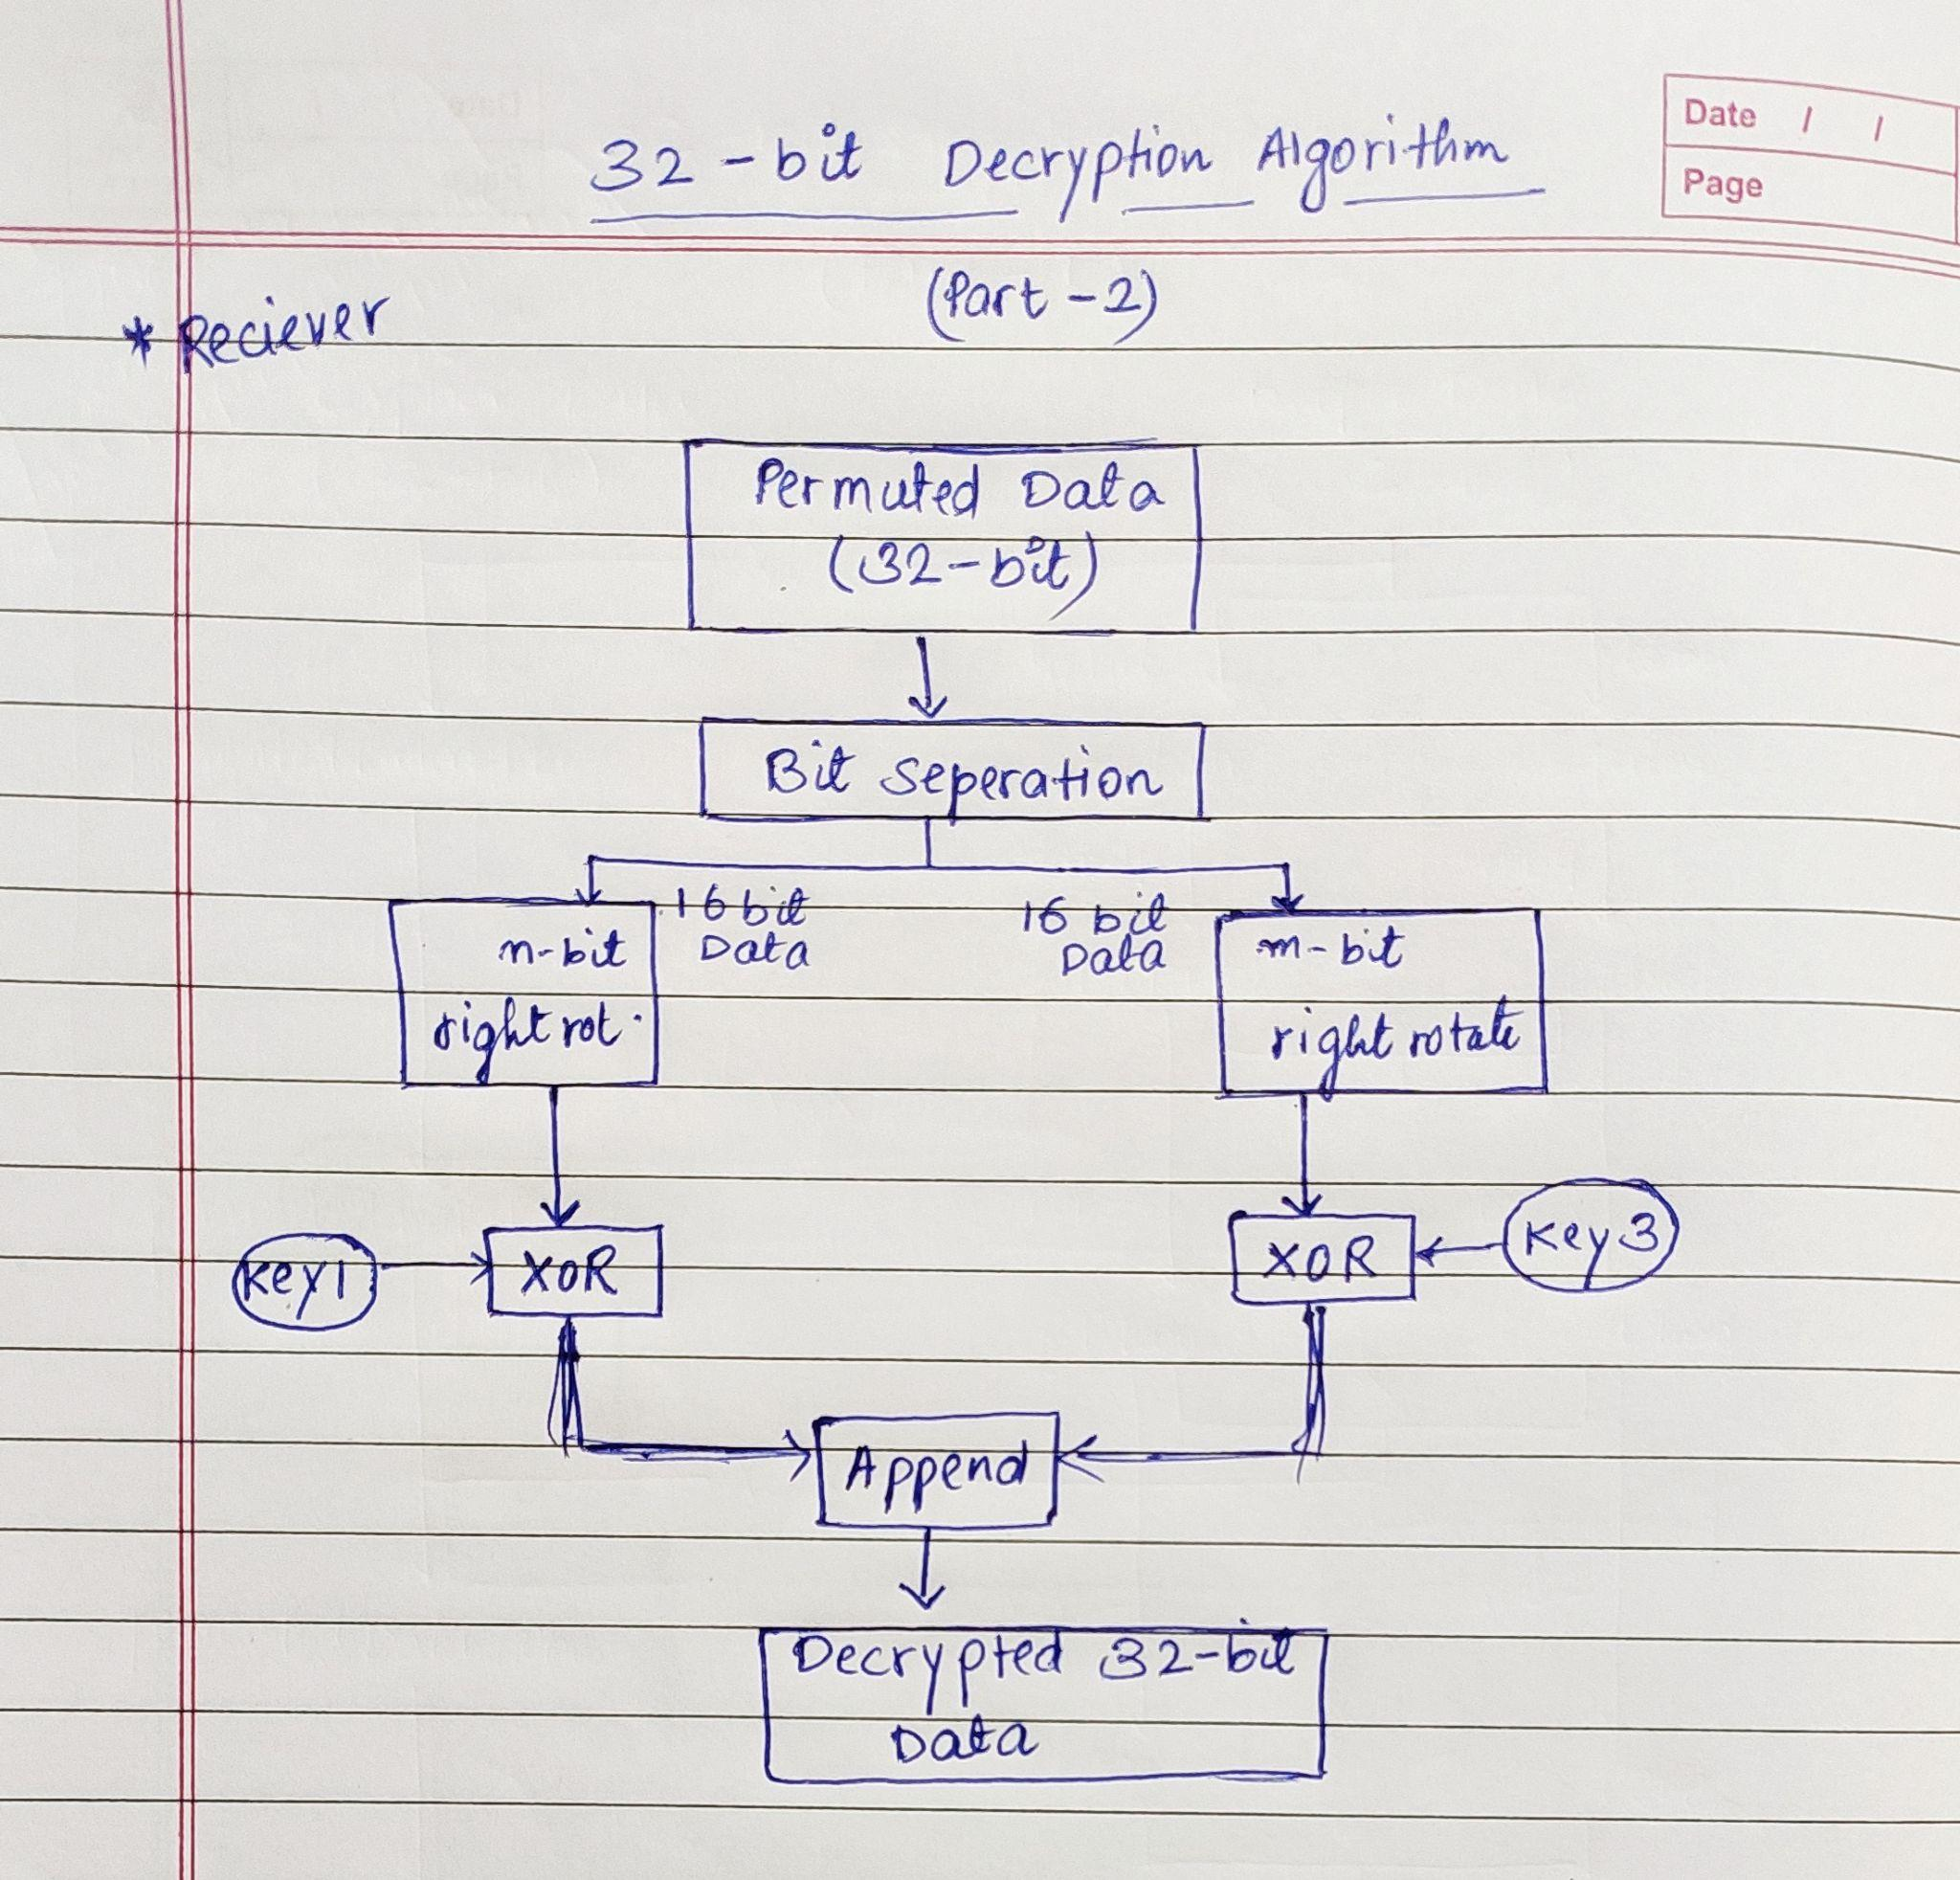 32-bit Decryption Algorithm
Date / /
Page
(Part-2)
* Reciever
Permuted Data
(32-bit)
Bit seperation
16 bit
Data
16 bit
Data
n-bit
right rot.
m-bit
right rotate
Key1
XOR
XOR
Key3
Append
Decrypted 32-bit
Data